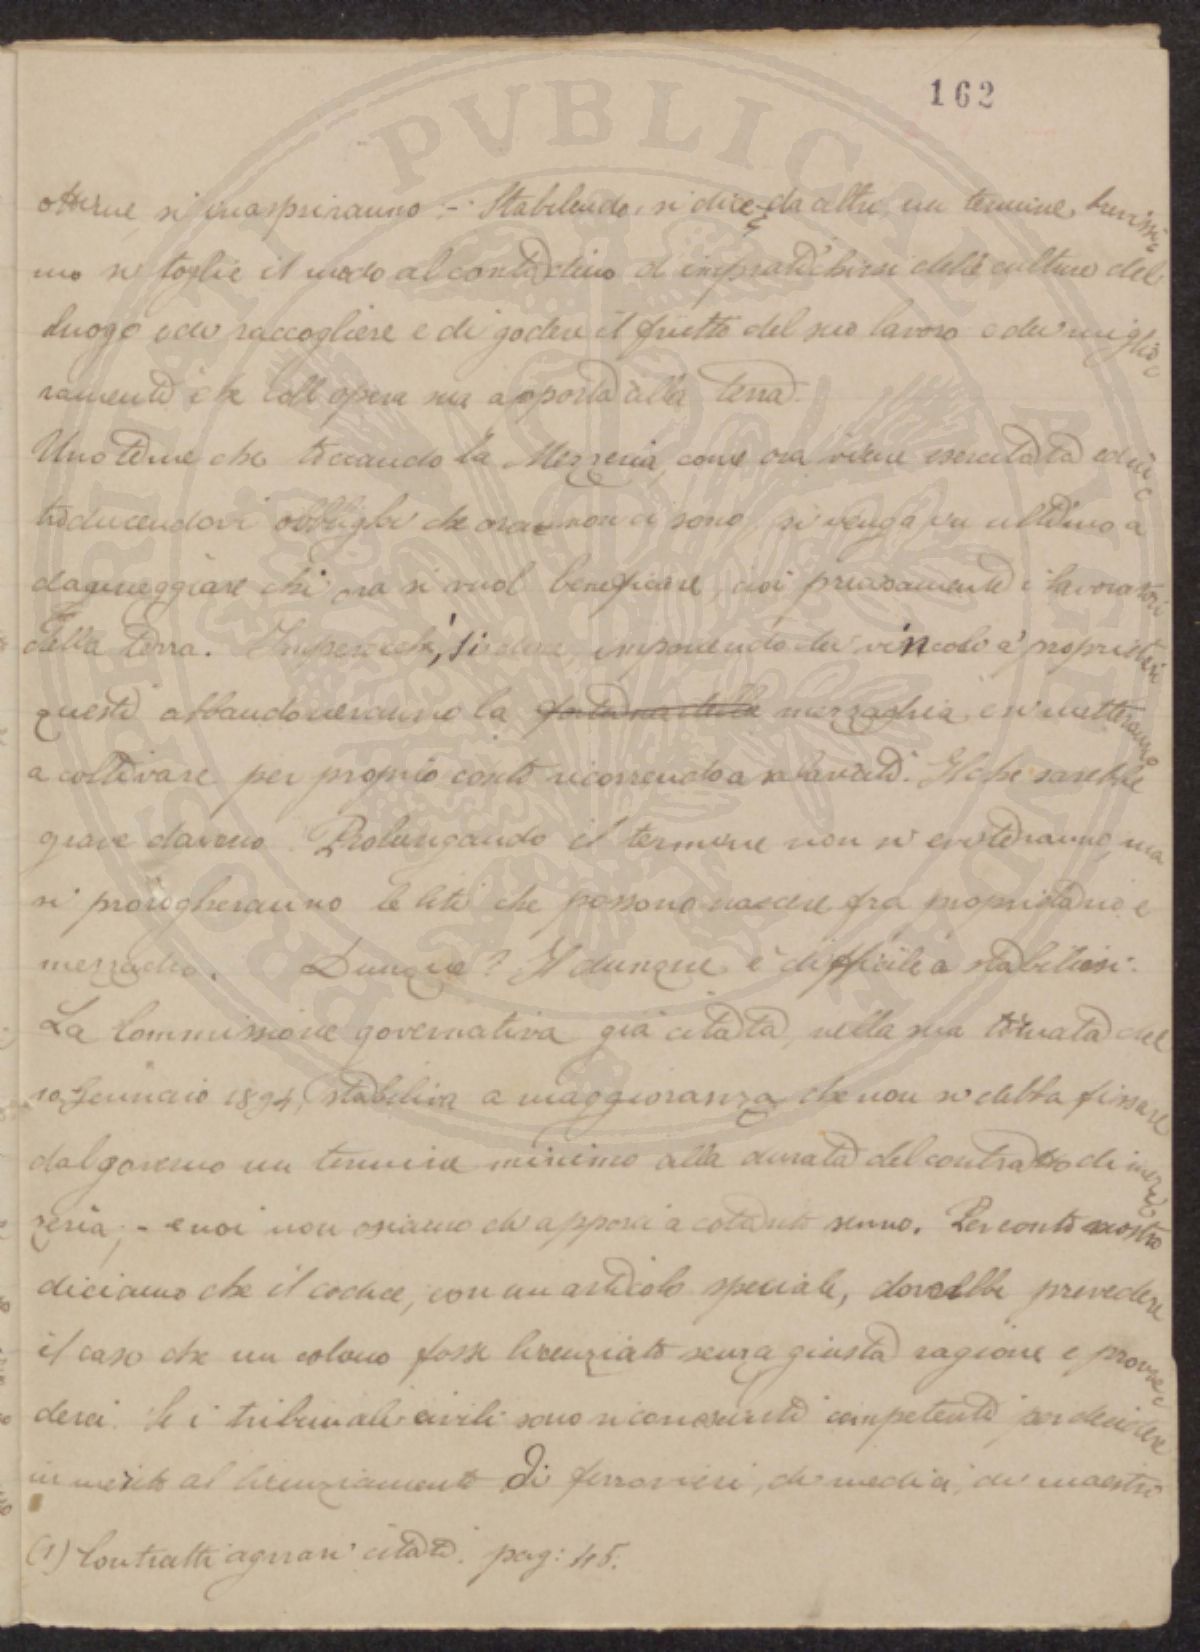 162
otterne, si inaspriranno - Stabilendo, si dice da altri, un termine, brevissi
mo si toglie il modo al contadino d'impratichirsi delle culture del
luogo e di raccogliere e di godere il frutto del suo lavoro e dei miglio
ramenti che coll'opera sua apporta alla terra.
Uno teme che toccando la Mezzeria, come ora viene esercitata ed in
troducendovi obblighi che ora non ci sono, si venga in ultimo a
danneggiare chi ora si vuol beneficare, cioè precisamente i lavoratori
della terra. Imperocchè, si dice, imponendo dei vincoli a' proprietari
questi abbandoneranno la mezzadria, e si metteranno
a coltivare per proprio conto ricorrendo a salariati. Il che sarebbe
grave davvero. Prolungando il termine non si eviteranno, ma
si prorogheranno le liti che possono nascere fra proprietario e
mezzadro. Dunque? Il dunque è difficile a stabilirsi.
La Commissione governativa già citata, nella sua tornata del
10 Gennaio 1894, stabiliva a maggioranza che non si debba fissare
dal governo un termine minimo alla durata del contratto di mez
zeria; - e noi non osiamo di apporci a cotanto senno. Per conto nostro
diciamo che il codice, con un articolo speciale, dovrebbe prevedere
il caso che un colono fosse licenziato senza giusta ragione e provve
dersi. Se i tribunali civili sono riconosciuti competenti per decidere
in merito al licenziamento di ferrovieri, di medici, di maestri
(1) Contratti agrari citati. pag: 45.
PROSPERITATI PVBLICAE AVGENDAE